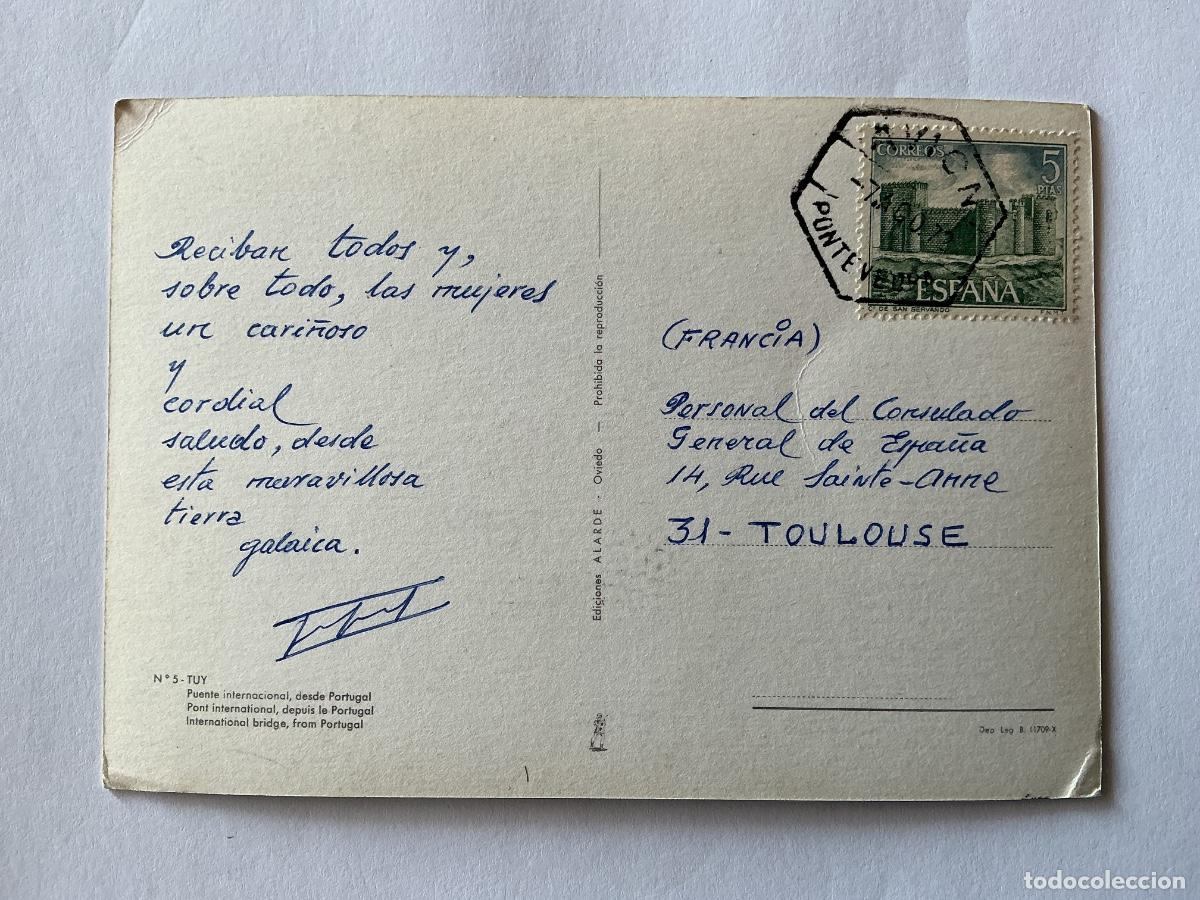 Reciban todos y,
sobre todo, las mujeres
un cariñoso
y
cordial
saludo, desde
esta maravillosa
tierra
galaica.
N° 5 - TUY
Puente internacional, desde Portugal
Pont international, depuis le Portugal
International bridge, from Portugal
Ediciones ALARDE - Oviedo — Prohibida la reproducción
CORREOS
5
PTAS
ESPAÑA
C° DE SAN SERVANDO
F.N.M.T.
PONTEVEDRA
(FRANCIA)
Personal del Consulado
General de España
14, Rue Sainte-Anne
31 - TOULOUSE
Dep. Leg. B. 11709-X
todocoleccion